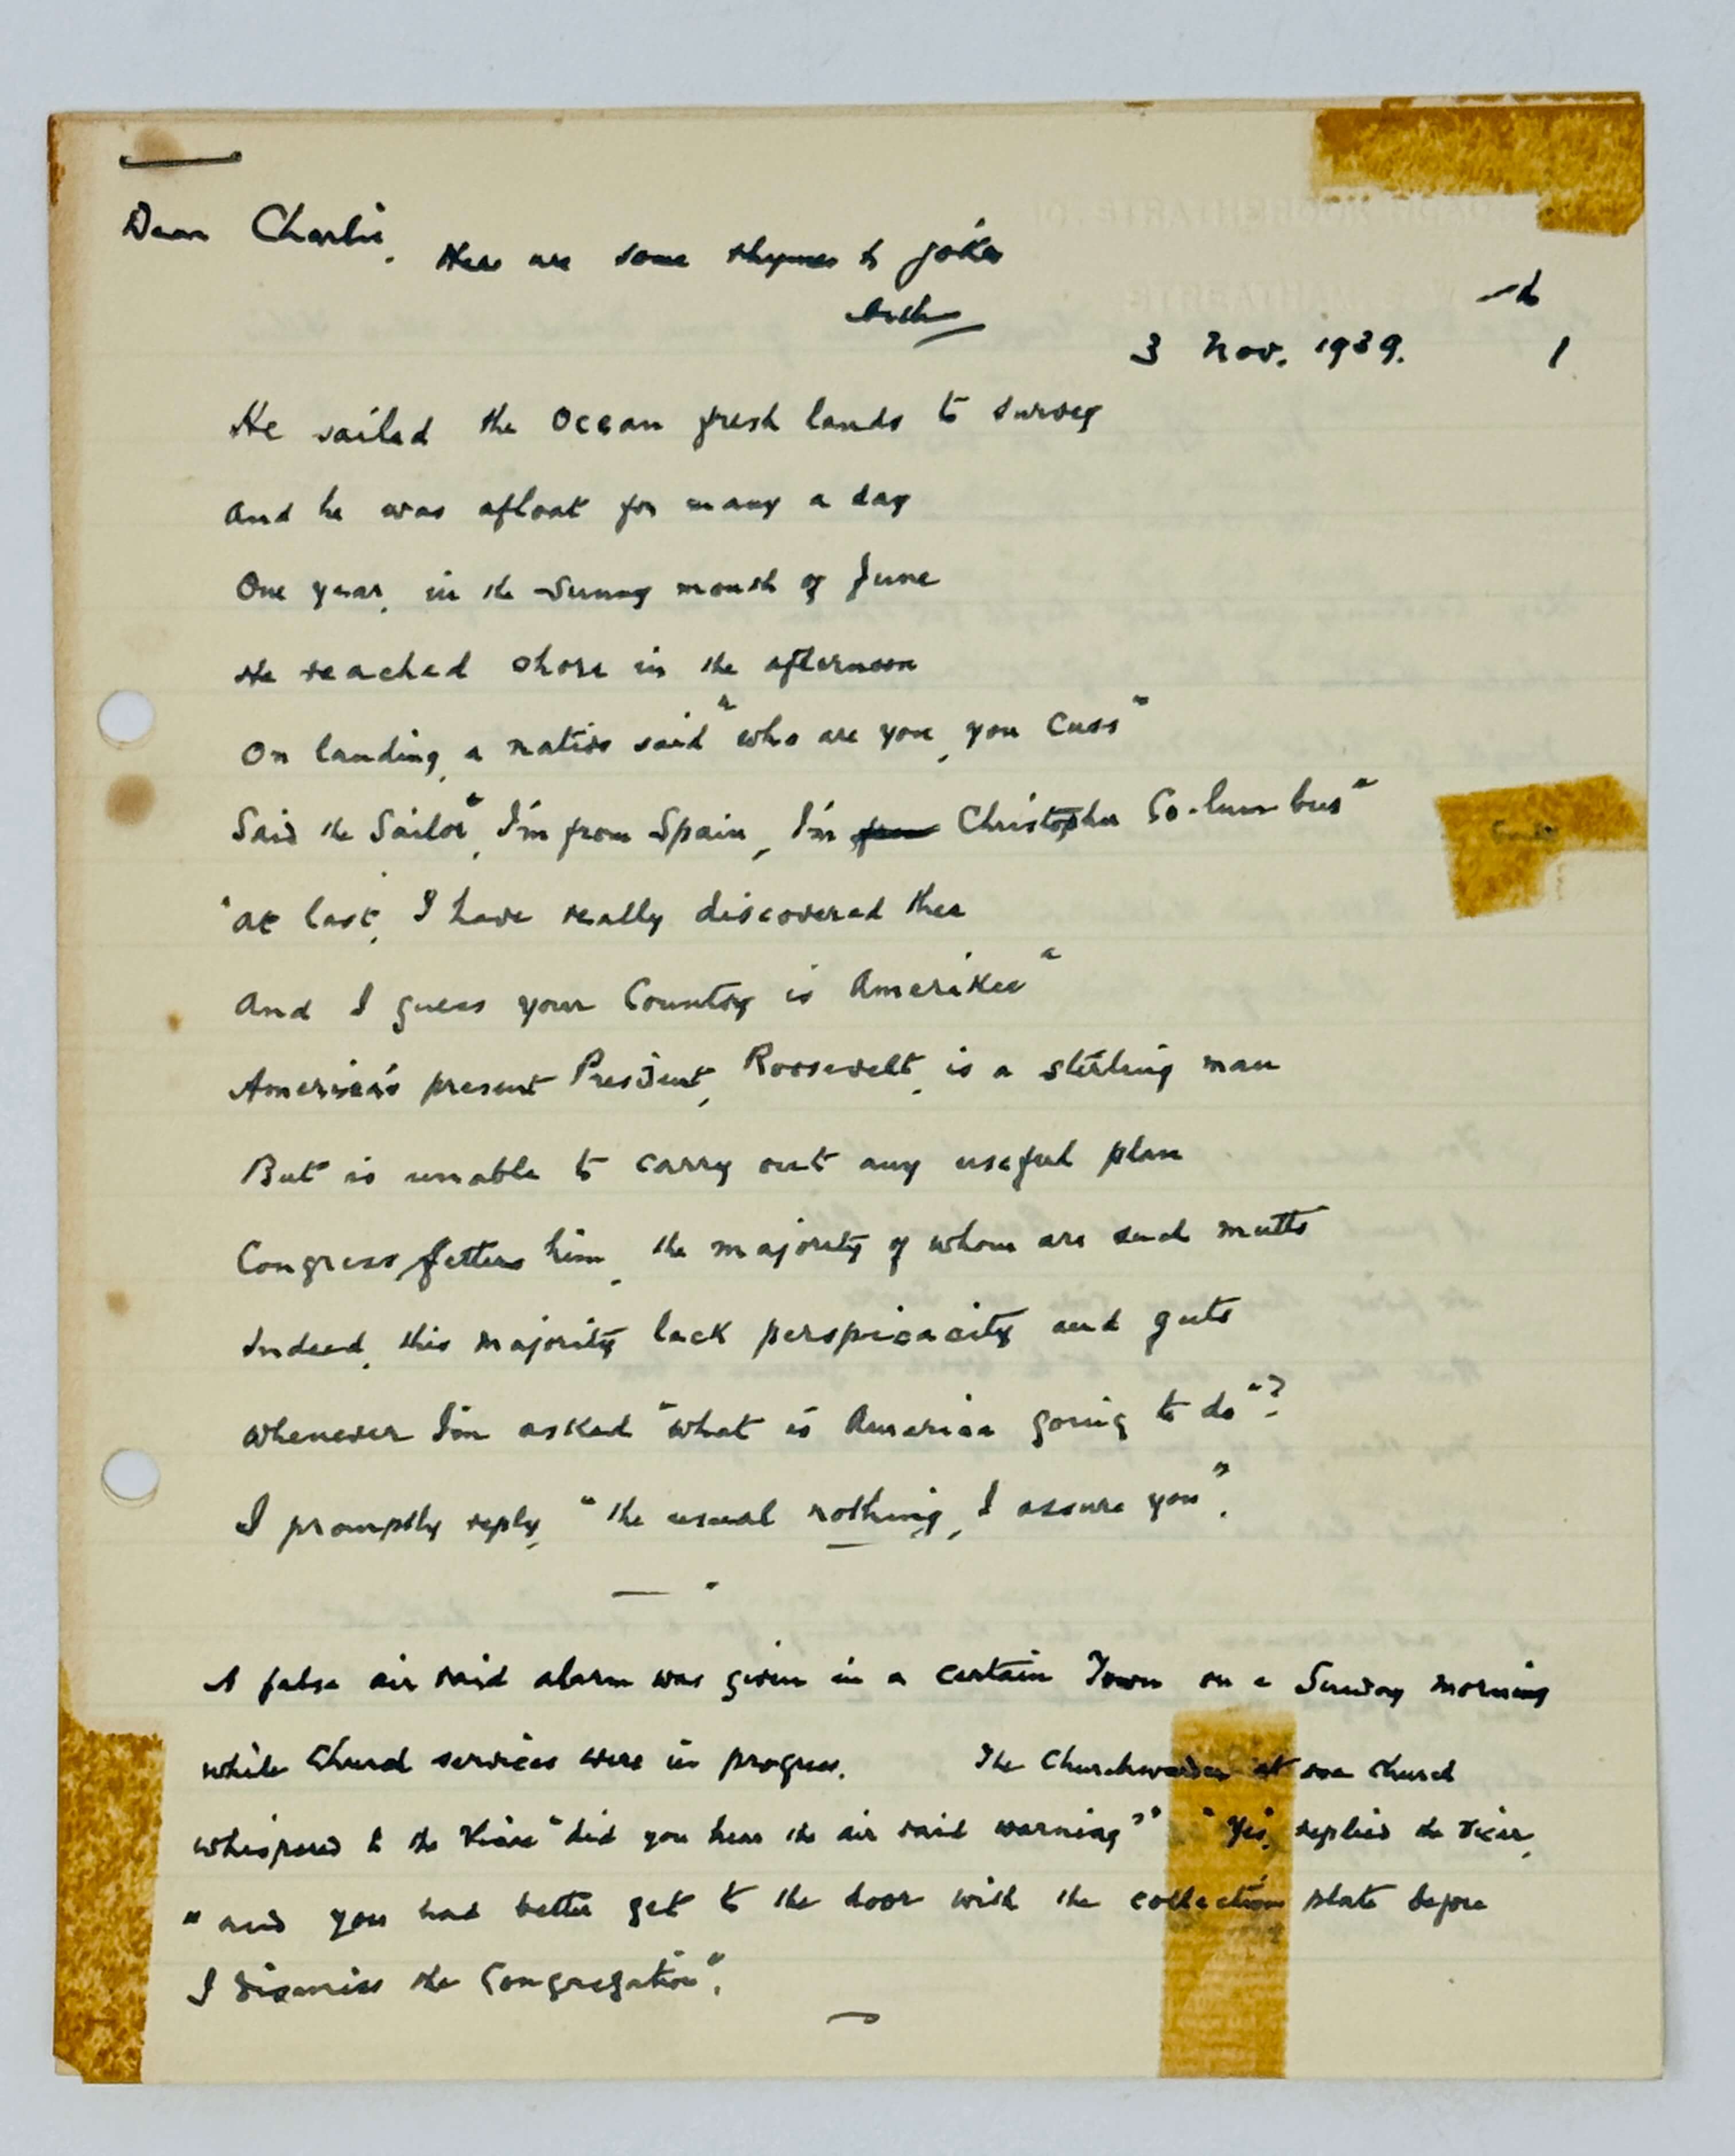 Dear Charlie,
Here are some rhymes & jokes
3 Nov. 1939. 1
He sailed the Ocean fresh lands to survey
And he was afloat for many a day
One year, in the Sunny month of June
He reached shore in the afternoon
On landing, a native said "who are you, you Cuss"
Said the Sailor", I'm from Spain, I'm Christopher Columbus"
"At last, I have really discovered thee
And I guess your Country is Amerikee"
America's present President, Roosevelt, is a stirling man
But is unable to carry out any useful plan
Congress fetters him, the majority of whom are such mutts
Indeed, this majority lack perspicacity and guts
Whenever I'm asked "what is America going to do"?
I promptly reply, "the usual nothing, I assure you".
A false air raid alarm was given in a certain Town on a Sunday morning
while Church services were in progress. The Churchwarden at one Church
whispered to the Vicar "did you hear the air raid warning?" "Yes, replied the Vicar,
"and you had better get to the door with the collection plate before
I dismiss the Congregation".